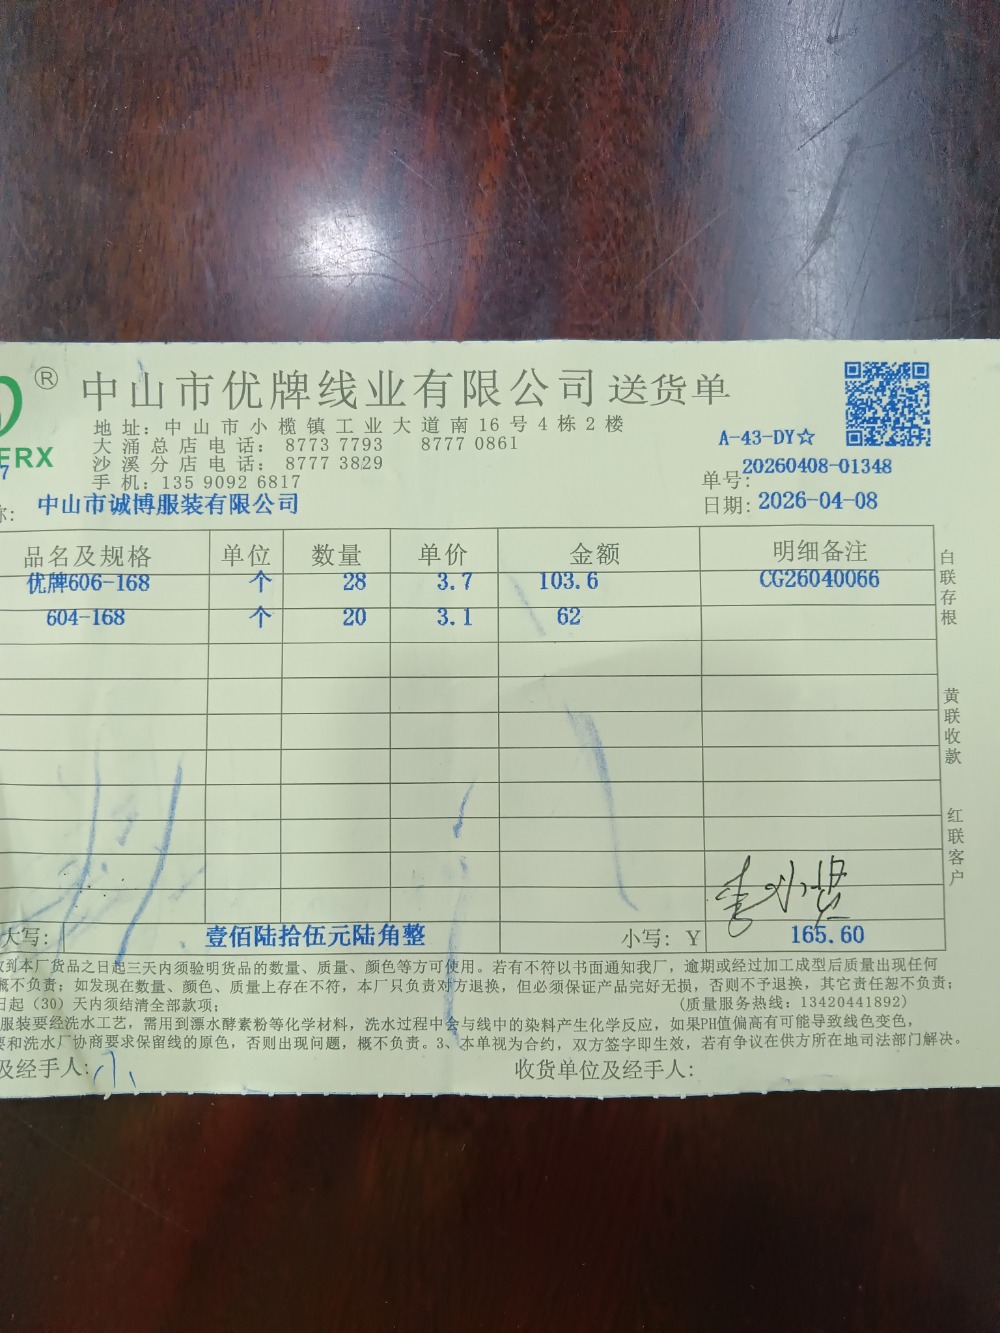 ®
中山市优牌线业有限公司 送货单
ERX
地址：中山市小榄镇工业大道南16号4栋2楼
大涌总店电话：8773 7793 8777 0861
沙溪分店电话：8777 3829
手机：135 9092 6817
A-43-DY☆
单号：20260408-01348
日期：2026-04-08
7
称：中山市诚博服装有限公司
品名及规格 单位 数量 单价 金额 明细备注
优牌606-168 个 28 3.7 103.6 CG26040066
604-168 个 20 3.1 62
白联存根
黄联收款
红联客户
大写：壹佰陆拾伍元陆角整 小写：Y 165.60
收到本厂货品之日起三天内须验明货品的数量、质量、颜色等方可使用。若有不符以书面通知我厂，逾期或经过加工成型后质量出现任何
概不负责；如发现在数量、颜色、质量上存在不符，本厂只负责对方退换，但必须保证产品完好无损，否则不予退换，其它责任恕不负责；
日起（30）天内须结清全部款项； (质量服务热线：13420441892)
服装要经洗水工艺，需用到漂水酵素粉等化学材料，洗水过程中会与线中的染料产生化学反应，如果PH值偏高有可能导致线色变色，
要和洗水厂协商要求保留线的原色，否则出现问题，概不负责。3、本单视为合约，双方签字即生效，若有争议在供方所在地司法部门解决。
及经手人： 收货单位及经手人：